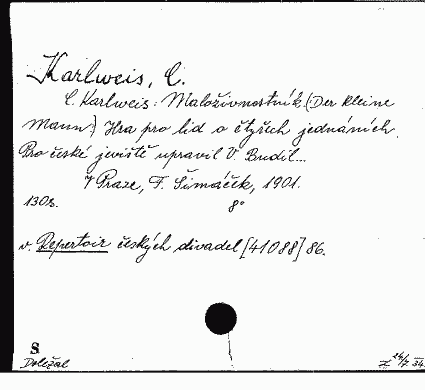 Karlweis, C.
C. Karlweis: Maloživnostník. (Der kleine
Mann.) Hra pro lid o čtyřech jednáních.
Pro české jeviště upravil V. Budil...
V Praze, F. Šimáček, 1901.
130s. 8°
v. Repertoir českých divadel [41088] 86.
S.
Doležal